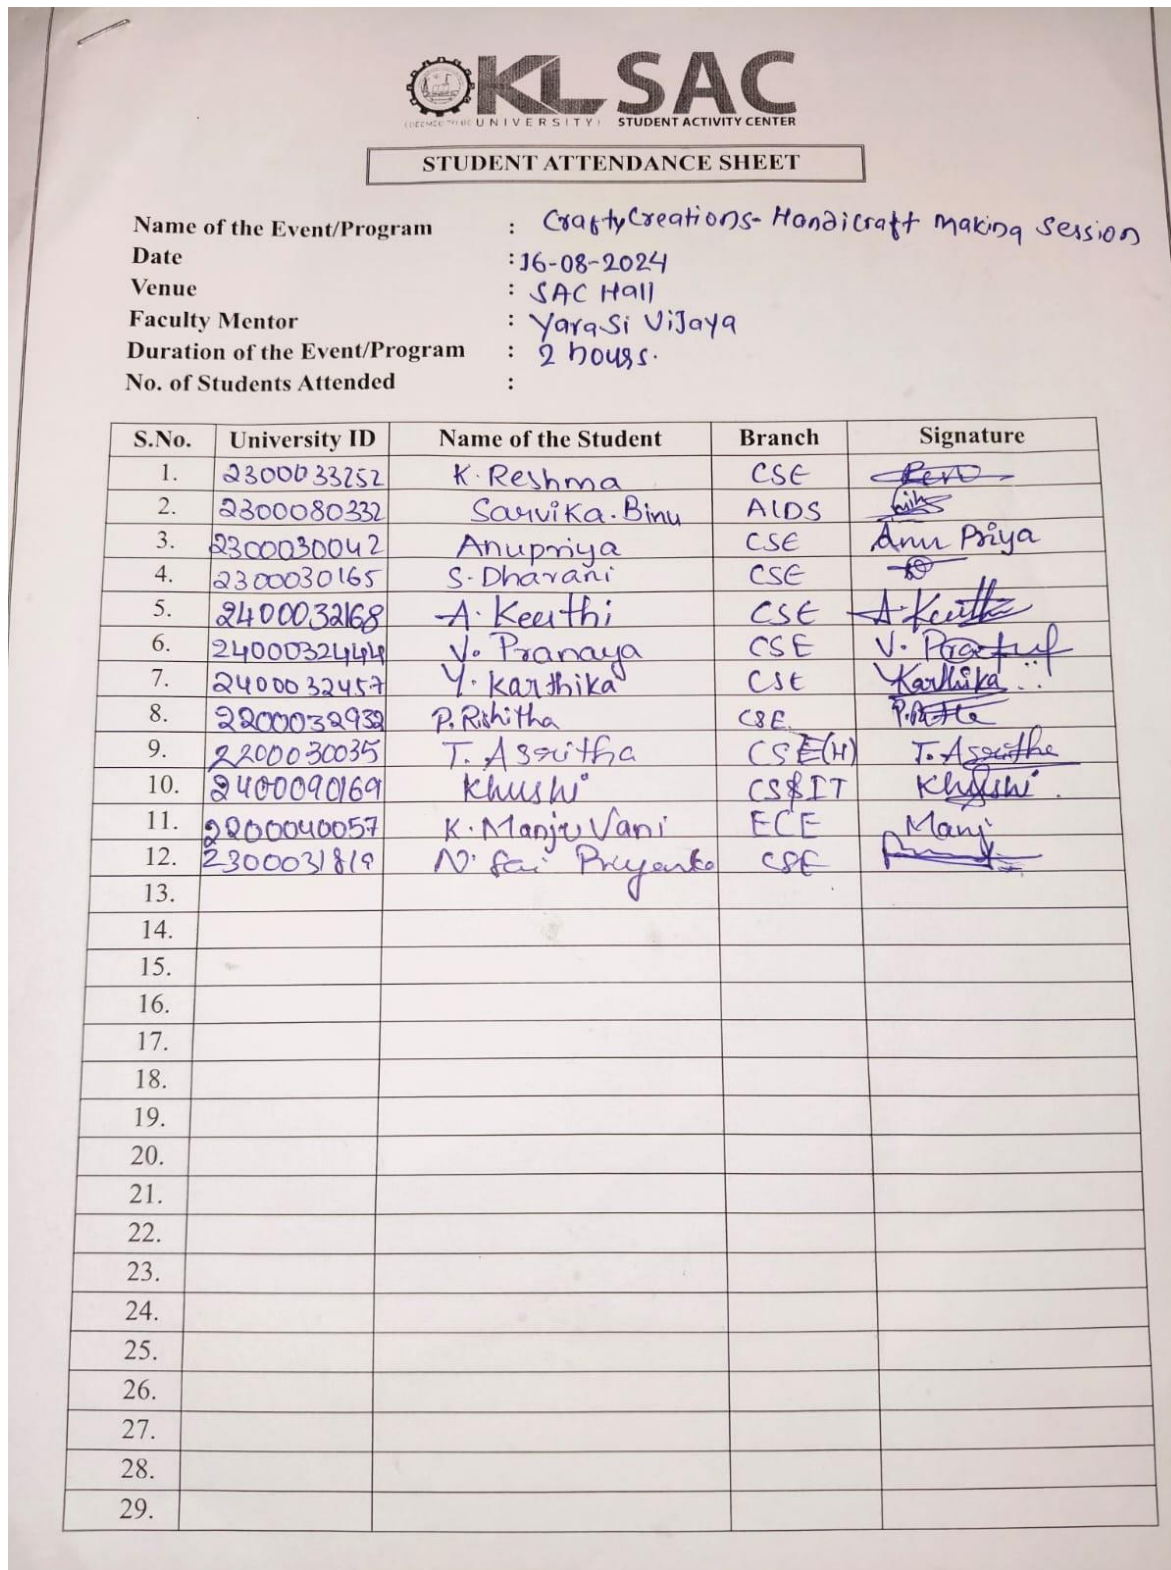 KL SAC
(DEEMED TO BE UNIVERSITY) STUDENT ACTIVITY CENTER
STUDENT ATTENDANCE SHEET
Name of the Event/Program : CraftyCreations- Handicraft Making Session
Date : 16-08-2024
Venue : SAC Hall
Faculty Mentor : Yarasi Vijaya
Duration of the Event/Program : 2 hours.
No. of Students Attended :
S.No. University ID Name of the Student Branch Signature
1. 2300033252 K. Reshma CSE
2. 2300080332 Sarvika. Binu AIDS
3. 2300030042 Anupriya CSE Anu Priya
4. 2300030165 S. Dharani CSE
5. 2400032168 A. Keerthi CSE A. Keerthi
6. 2400032444 V. Pranaya CSE V.
7. 2400032457 Y. Karthika CSE Karthika
8. 2200032932 P. Rishitha CSE
9. 2200030035 T. Asritha CSE(H) T. Asritha
10. 2400090169 Khushi CS&IT Khushi
11. 2200040057 K. Manju Vani ECE Manj
12. 2300031819 N. Sai Priyanka CSE
13.
14.
15.
16.
17.
18.
19.
20.
21.
22.
23.
24.
25.
26.
27.
28.
29.